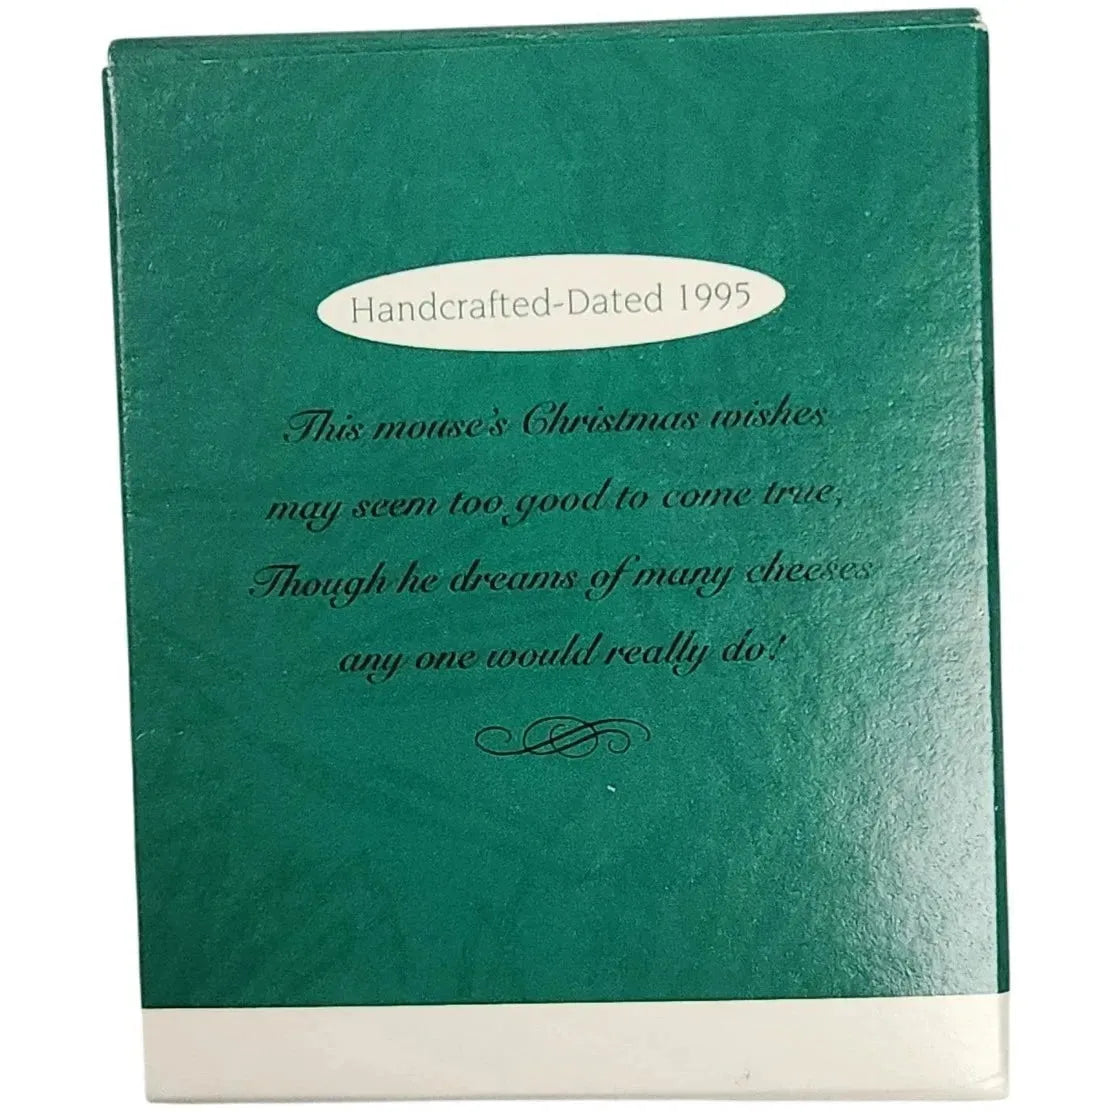 Handcrafted-Dated 1995
This mouse's Christmas wishes
may seem too good to come true,
Though he dreams of many cheeses
any one would really do!